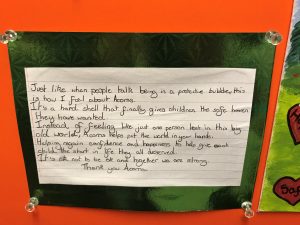 Just like when people talk being is a protective bubble, this
is how I feel about Acorns.
It's a hard shell that finally gives children the safe haven
they have wanted.
Instead of feeling like just one person lost in this big
old world, Acorns helps put the world in your hands.
Helping regain confidence and happiness to help give each
child the start in life they all deserved.
It's ok not to be ok and together we are strong.
Thank you Acorns
Saf